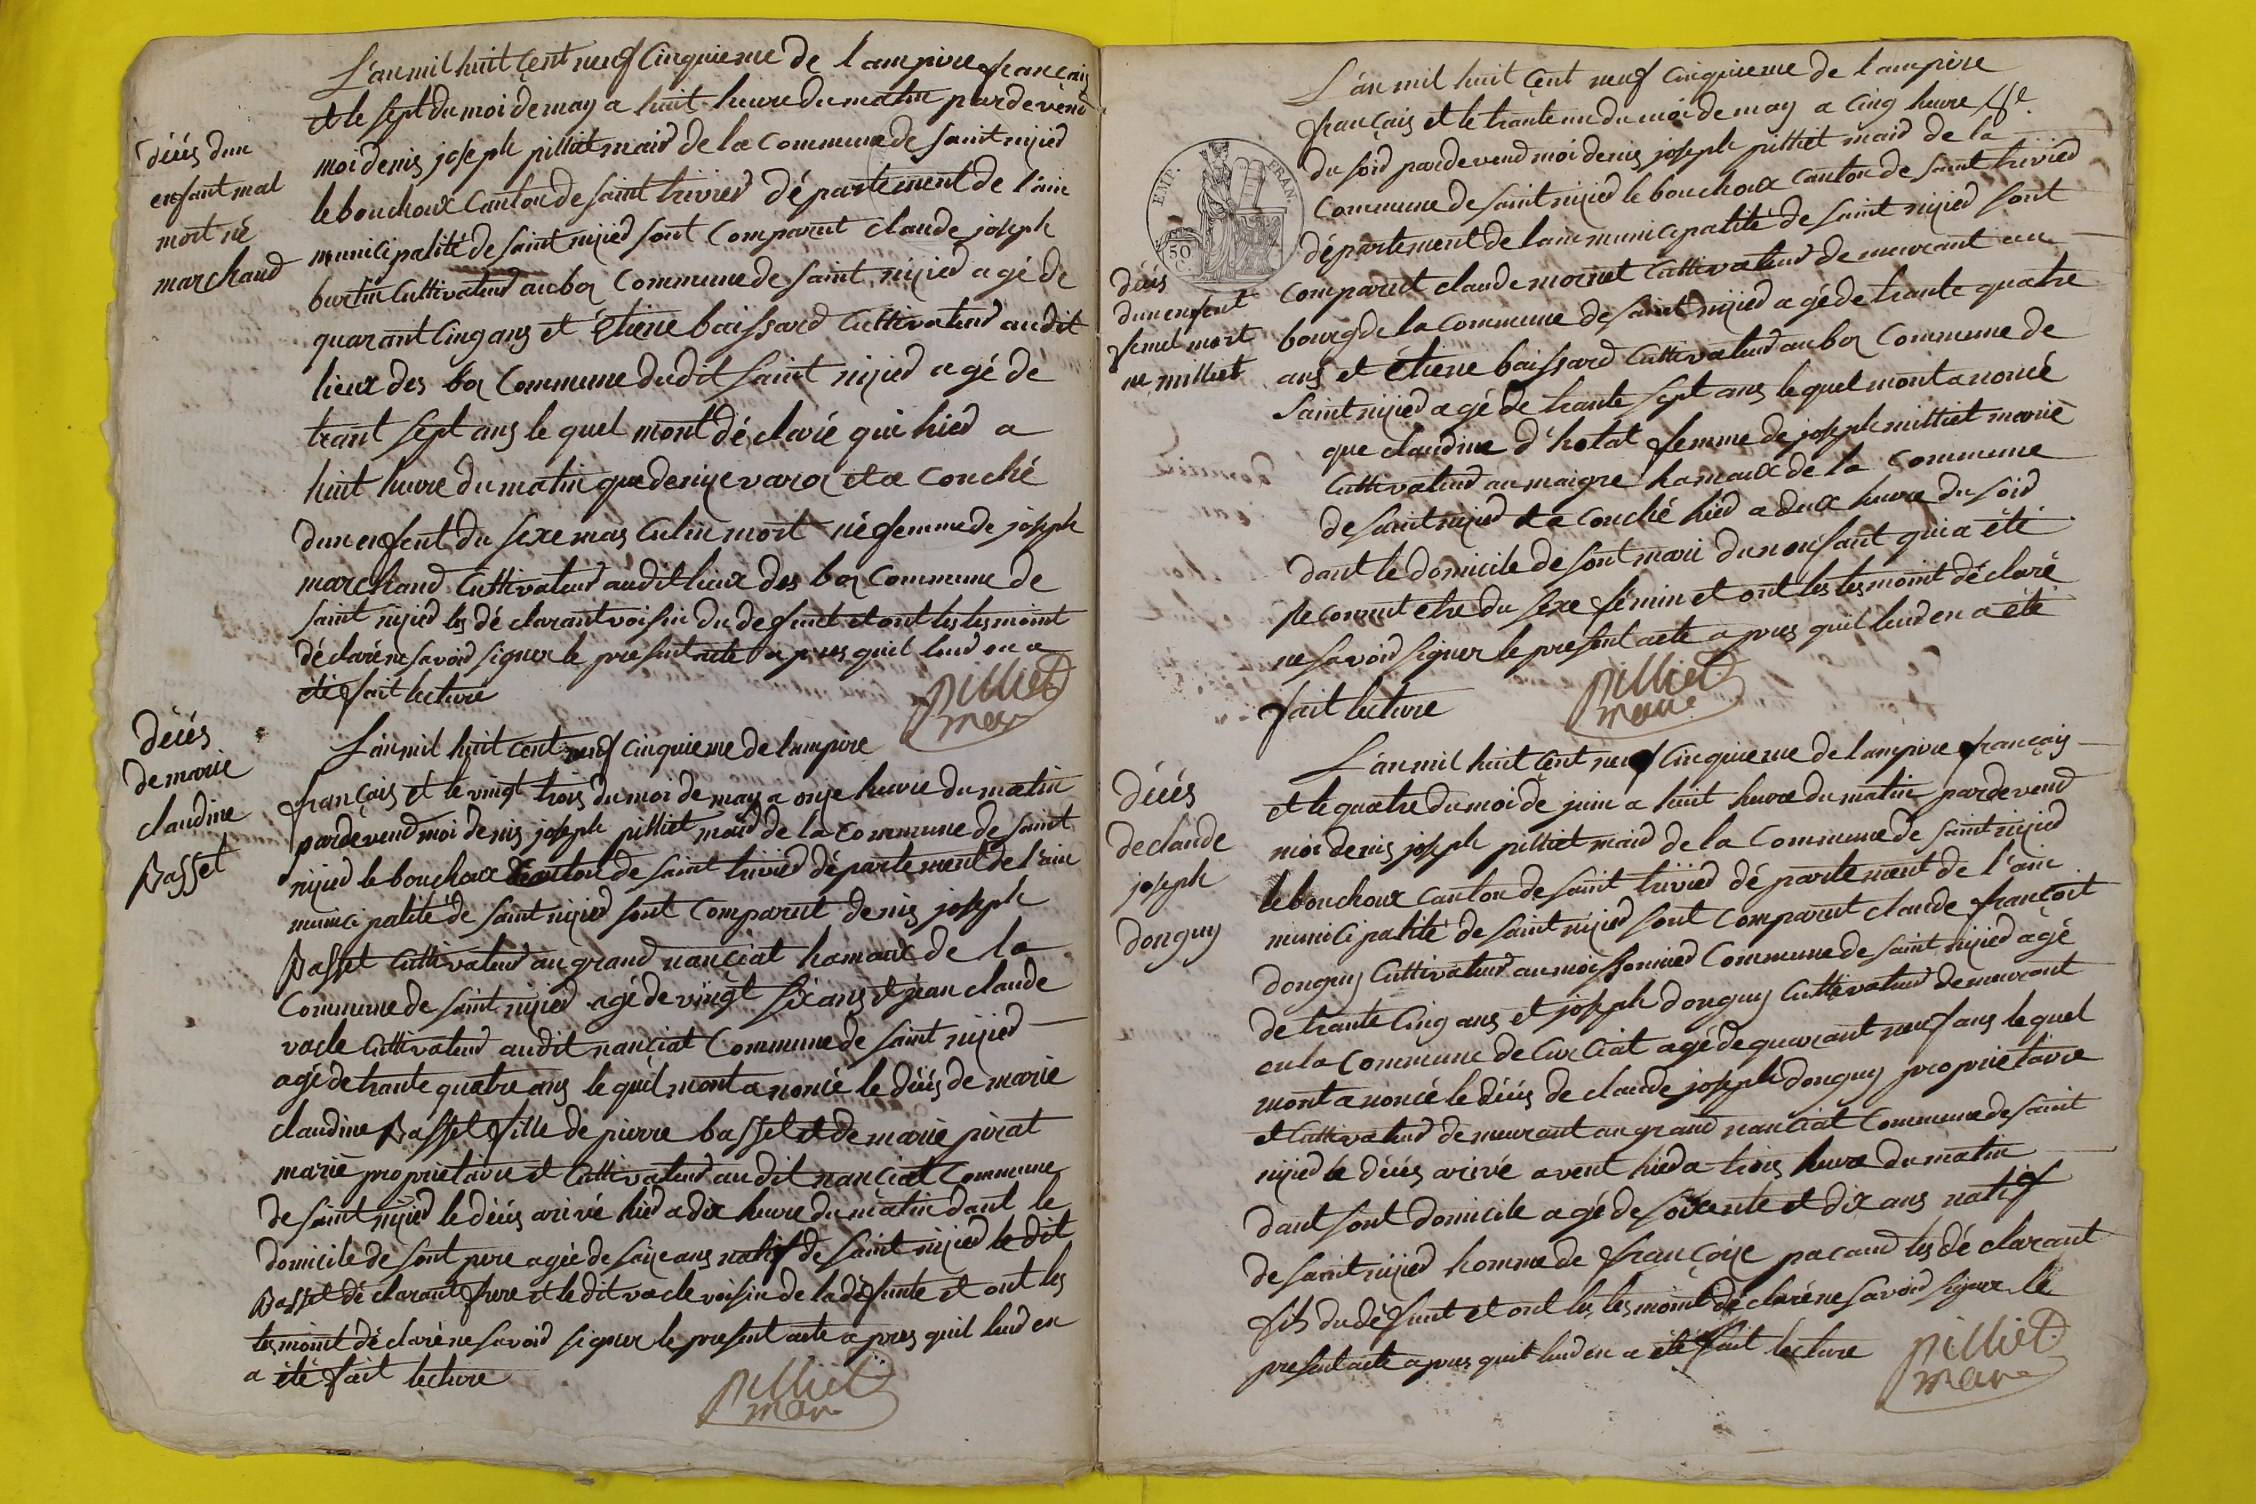 L'an mil huit cent neuf cinquieme de l'ampire francais
et le sept du moi de may a huit heure du matin pardevend
moi denis joseph pilliet maird de la commune de saint nizied
le bouchoux canton de saint trivied département de l'ain
municipalité de saint nizied sont comparut claude joseph
burtin cultivateud au boz commune de saint nizied agé de
quarant cinq ans et étiene baissard cultivateud audit
lieux des boz commune dudit saint nizied agé de
trant sept ans le quel mont déclarié qui hied a
huit heure du matin que denize varoz et a couché
dun enfent du sexe mas culin mort né femme de joseph
marchand cultivateud audit lieux des boz commune de
saint nizied les déclarant voisin du defunt et ont les tesmoint
déclaré ne savoid signer le present acte apres quil leud en a
été fait lecture
pilliet
mair
décés dun
enfant mal
mort né
marchand
L'an mil huit cent neuf cinquieme de lampire
français et le vingt trois du moi de may a onze heure du matin
pardevend moi denis joseph pilliet maird de la commune de saint
nizied le bouchoux canton de saint trivied département de l'ain
municipalité de saint nizied sont comparut denis joseph
Basset cultivateud au grand nanciat hamaux de la
commune de saint nizied agé de vingt six ans et jean claude
vacle cultivateud audit nanciat commune de saint nizied
agé de trante quatre ans le quil mont anoncé le décés de marie
claudine Basset fille de pierre basset et de marie pirat
marié proprietaire et cultivateud audit nanciat commune
de saint nizied le décés arivé hied a dix heure du matin dant le
domicile de sont pere agée de saize ans natif de saint nizied le dit
Basset déclarant frere et le dit vacle voisin de la défunte et ont les
tesmoint déclaré ne savoid signer le present acte apres quil leud en
a été fait lecture
pilliet
mair
décés
de marie
claudine
Basset
L'an mil huit cent neuf cinquieme de lampire
français et le trante un du moi de may a cinq heure
du soid pardevend moi denis joseph pilliet maird de la
commune de saint nizied le bouchoux canton de saint trivied
département de lain municipalité de saint nizied sont
comparut claude moirnet cultivateud demeurant au
bourg de la commune de saint nizied agé de trante quatre
ans et étiene baissard cultivateud au boz commune de
saint nizied agé de trante sept ans le quel mont anoncé
que claudine d'hotat femme de joseph milliet marié
cultivateud au maigre hamaux de la commune
de saint nizied et a couché hied a deux heure du soid
dant le domicile de sont mari dun enfant qui a été
reconnut etre du sexe fémin et ont les tesmoint déclaré
ne savoid signer le present acte apres quil leud en a été
fait lecture
pilliet
maire
EMP. FRAN.
50 C
décés
dun enfent
femel mort
né milliet
L'an mil huit cent neuf cinquieme de lampire français
et le quatre du moi de juin a huit heure du matin pardevend
moi denis joseph pilliet maird de la commune de saint nizied
le bouchoux canton de saint trivied département de l'ain
municipalité de saint nizied sont comparut claude françoit
donguy cultivateud au moissonnied commune de saint nizied agé
de trante cinq ans et joseph donguy cultivateud demeurant
en la commune de curciat agé de quarant neuf ans le quel
mont anoncé le décés de claude joseph donguy proprietaire
et cultivateud demeurant au grand nanciat commune de saint
nizied le décés arivé avent hied a trois heure du matin
dant sont domicile agé de soixente et dix ans natif
de saint nizied homme de françoize pacaud les déclarant
fils du défunt et ont les tesmoint déclaré ne savoid signer le
present acte apres quil leud en a été fait lecture
pilliet
maire
décés
de claude
joseph
donguy